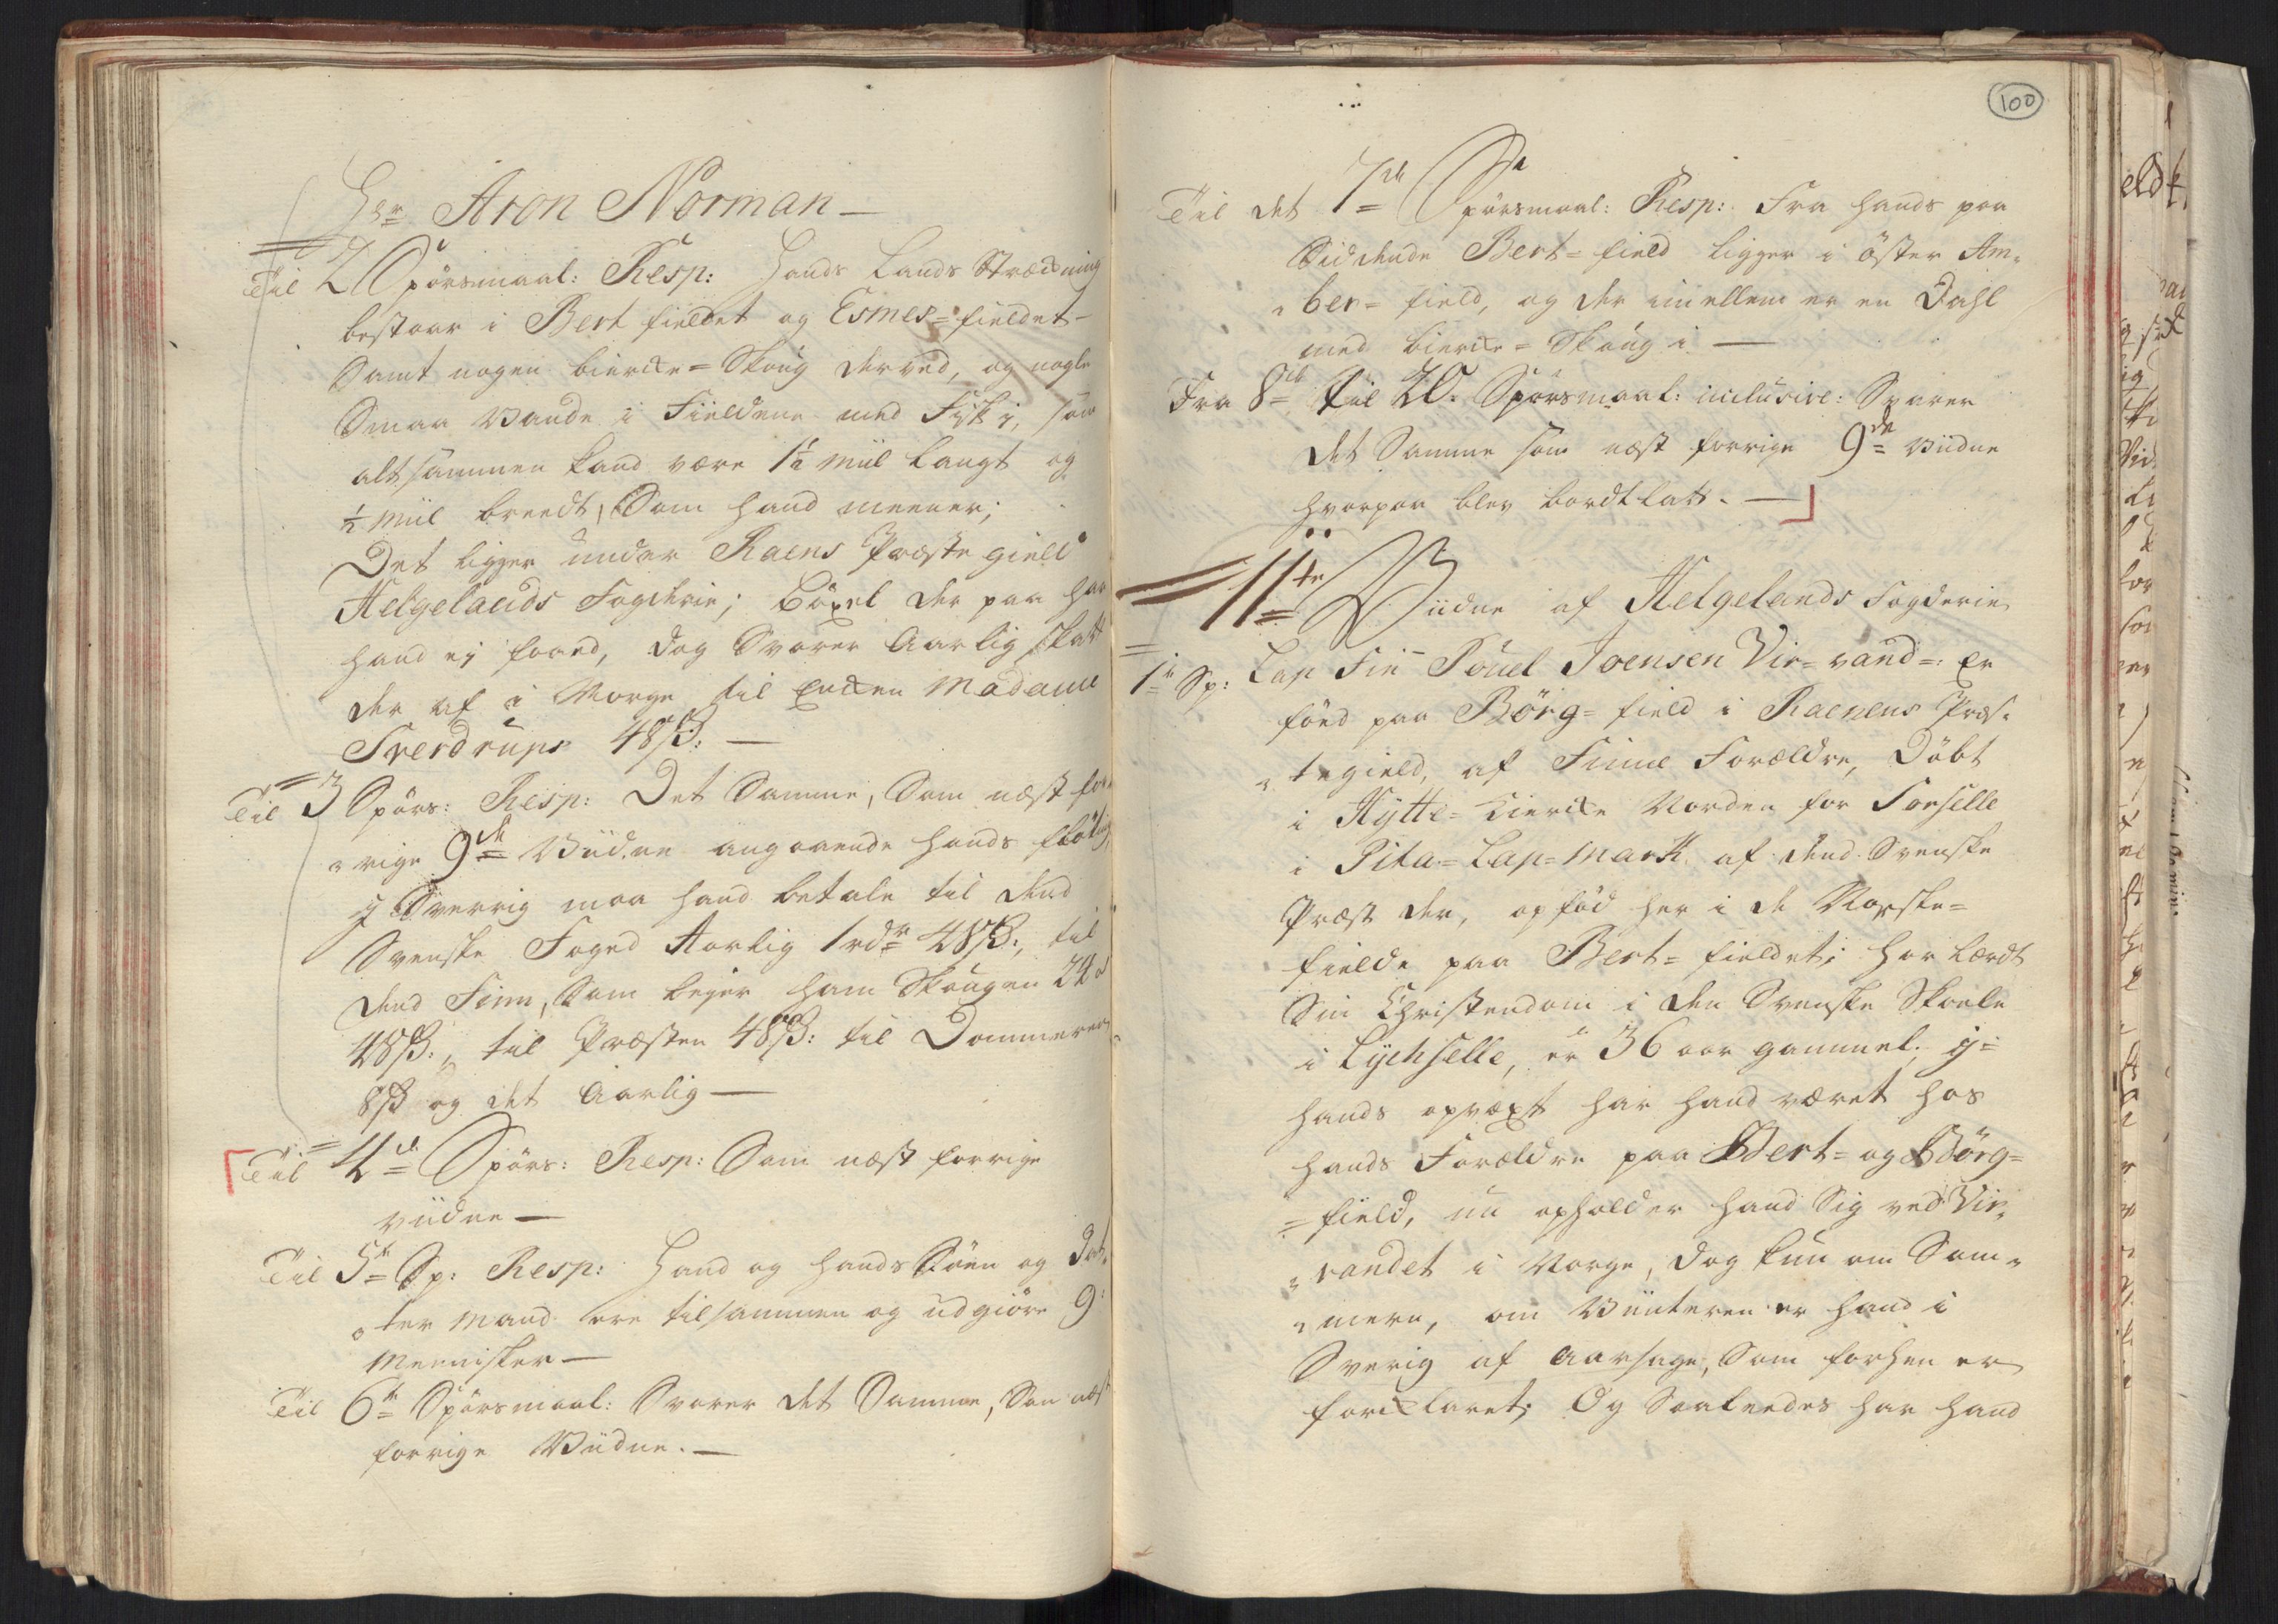 Her Aron Norman —
Til 2 Spörsmaal: Resp: Hands Lands Strækning
bestaar i Bert fieldet og Esmes=fieldet
Samt nogen bierke=Skoug derved, og nogle
Smaa Vande i Fieldene med Fisk i, som
altsammen kand være 1½ Miil langt og
½ Miil breedt, Som hand meener;
Det ligger under Raens Præste gield
Helgelands Fogderie; Böxel der paa har
hand ej faaed, dog Svarer Aarlig skatt
der af i Norge til Enken Madame
Sverdrups 48 ß: —
Til 3 Spörs: Resp: Det Samme, Som næst for=
rige 9de Viidne angaaende hands
j Sverrig maa hand betale til dend
Svenske Foged Aarlig 1 rdr 48 ß:, til
dend Finn, Som lejer ham Skougen 24 a
48 ß:, til Præsten 48 ß: til Dommeren
8 ß og det Aarlig —
Til 4de Spörs: Resp: Som næst forrige
viidne —
Til 5te Sp: Resp: Hand og hands Sön og Dat=
ter Mand ere tilsammen og udgiöre 9:
Mennisker —
Til 6te Spörsmaal: Svarer det Samme, Som næst
forrige Viidne. —
100
Til det 7de Spörsmaal: Resp: Fra hands paa
Siddende Bert=field ligger i öster Am=
ber=field, og der imellem er en Dahl
med bierke=Skoug i —
Fra 8de til 20. Spörsmaal: inclusive: Svarer
det Samme som næst forrige 9de Viidne
hvorpaa blev bordtladt. —
11te Viidne af Helgelands Fogderie
1te Sp: Lap Fin Pouel Joensen Vir=vand=: Er
föed paa Börg=field i Raenens Præs=
tegield, af Finne Forældre, Döbt
i Hytte=Kierke Norden for Sorselle
i Pita=Lap=Mark af dend Svenske
Præst der, opföd her i de Norske=
fielde paa Bert=fieldet; har lærdt
Sin Christendom i den Svenske Skoele
i Lychselle, er 36 aar gammel, j=
hands opvæxt har hand været hos
hands Forældre paa Bert= og Börg=
=field, nu opholder hand Sig ved Vir=
vandet i Norge, dog kun om Som=
meren, om Viinteren er hand i
Sverig af Aarsage, Som forhen er
forklaret; Og Saaleedes har hand